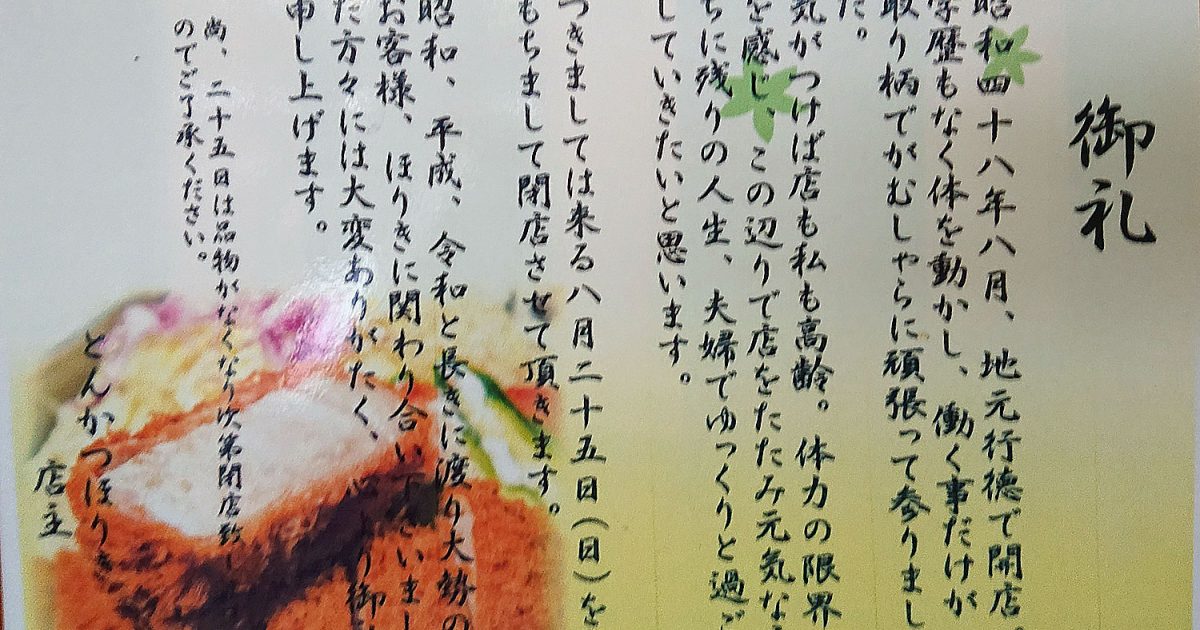 御礼
昭和四十八年八月、地元行徳で開店
学歴もなく体を動かし、働く事だけが
取り柄でがむしゃらに頑張って参りまし
た。
気がつけば店も私も高齢。体力の限界
を感じ、この辺りで店をたたみ元気な
ちに残りの人生、夫婦でゆっくりと過ご
していきたいと思います。
つきましては来る八月二十五日(日)を
もちまして閉店させて頂きます。
昭和、平成、令和と長きに渡り大勢の
お客様、ほりきに関わり合い下さいまし
た方々には大変ありがたく、心より御
申し上げます。
尚、二十五日は品物がなくなり次第閉店致し
のでご了承ください。
とんかつほりき
店主